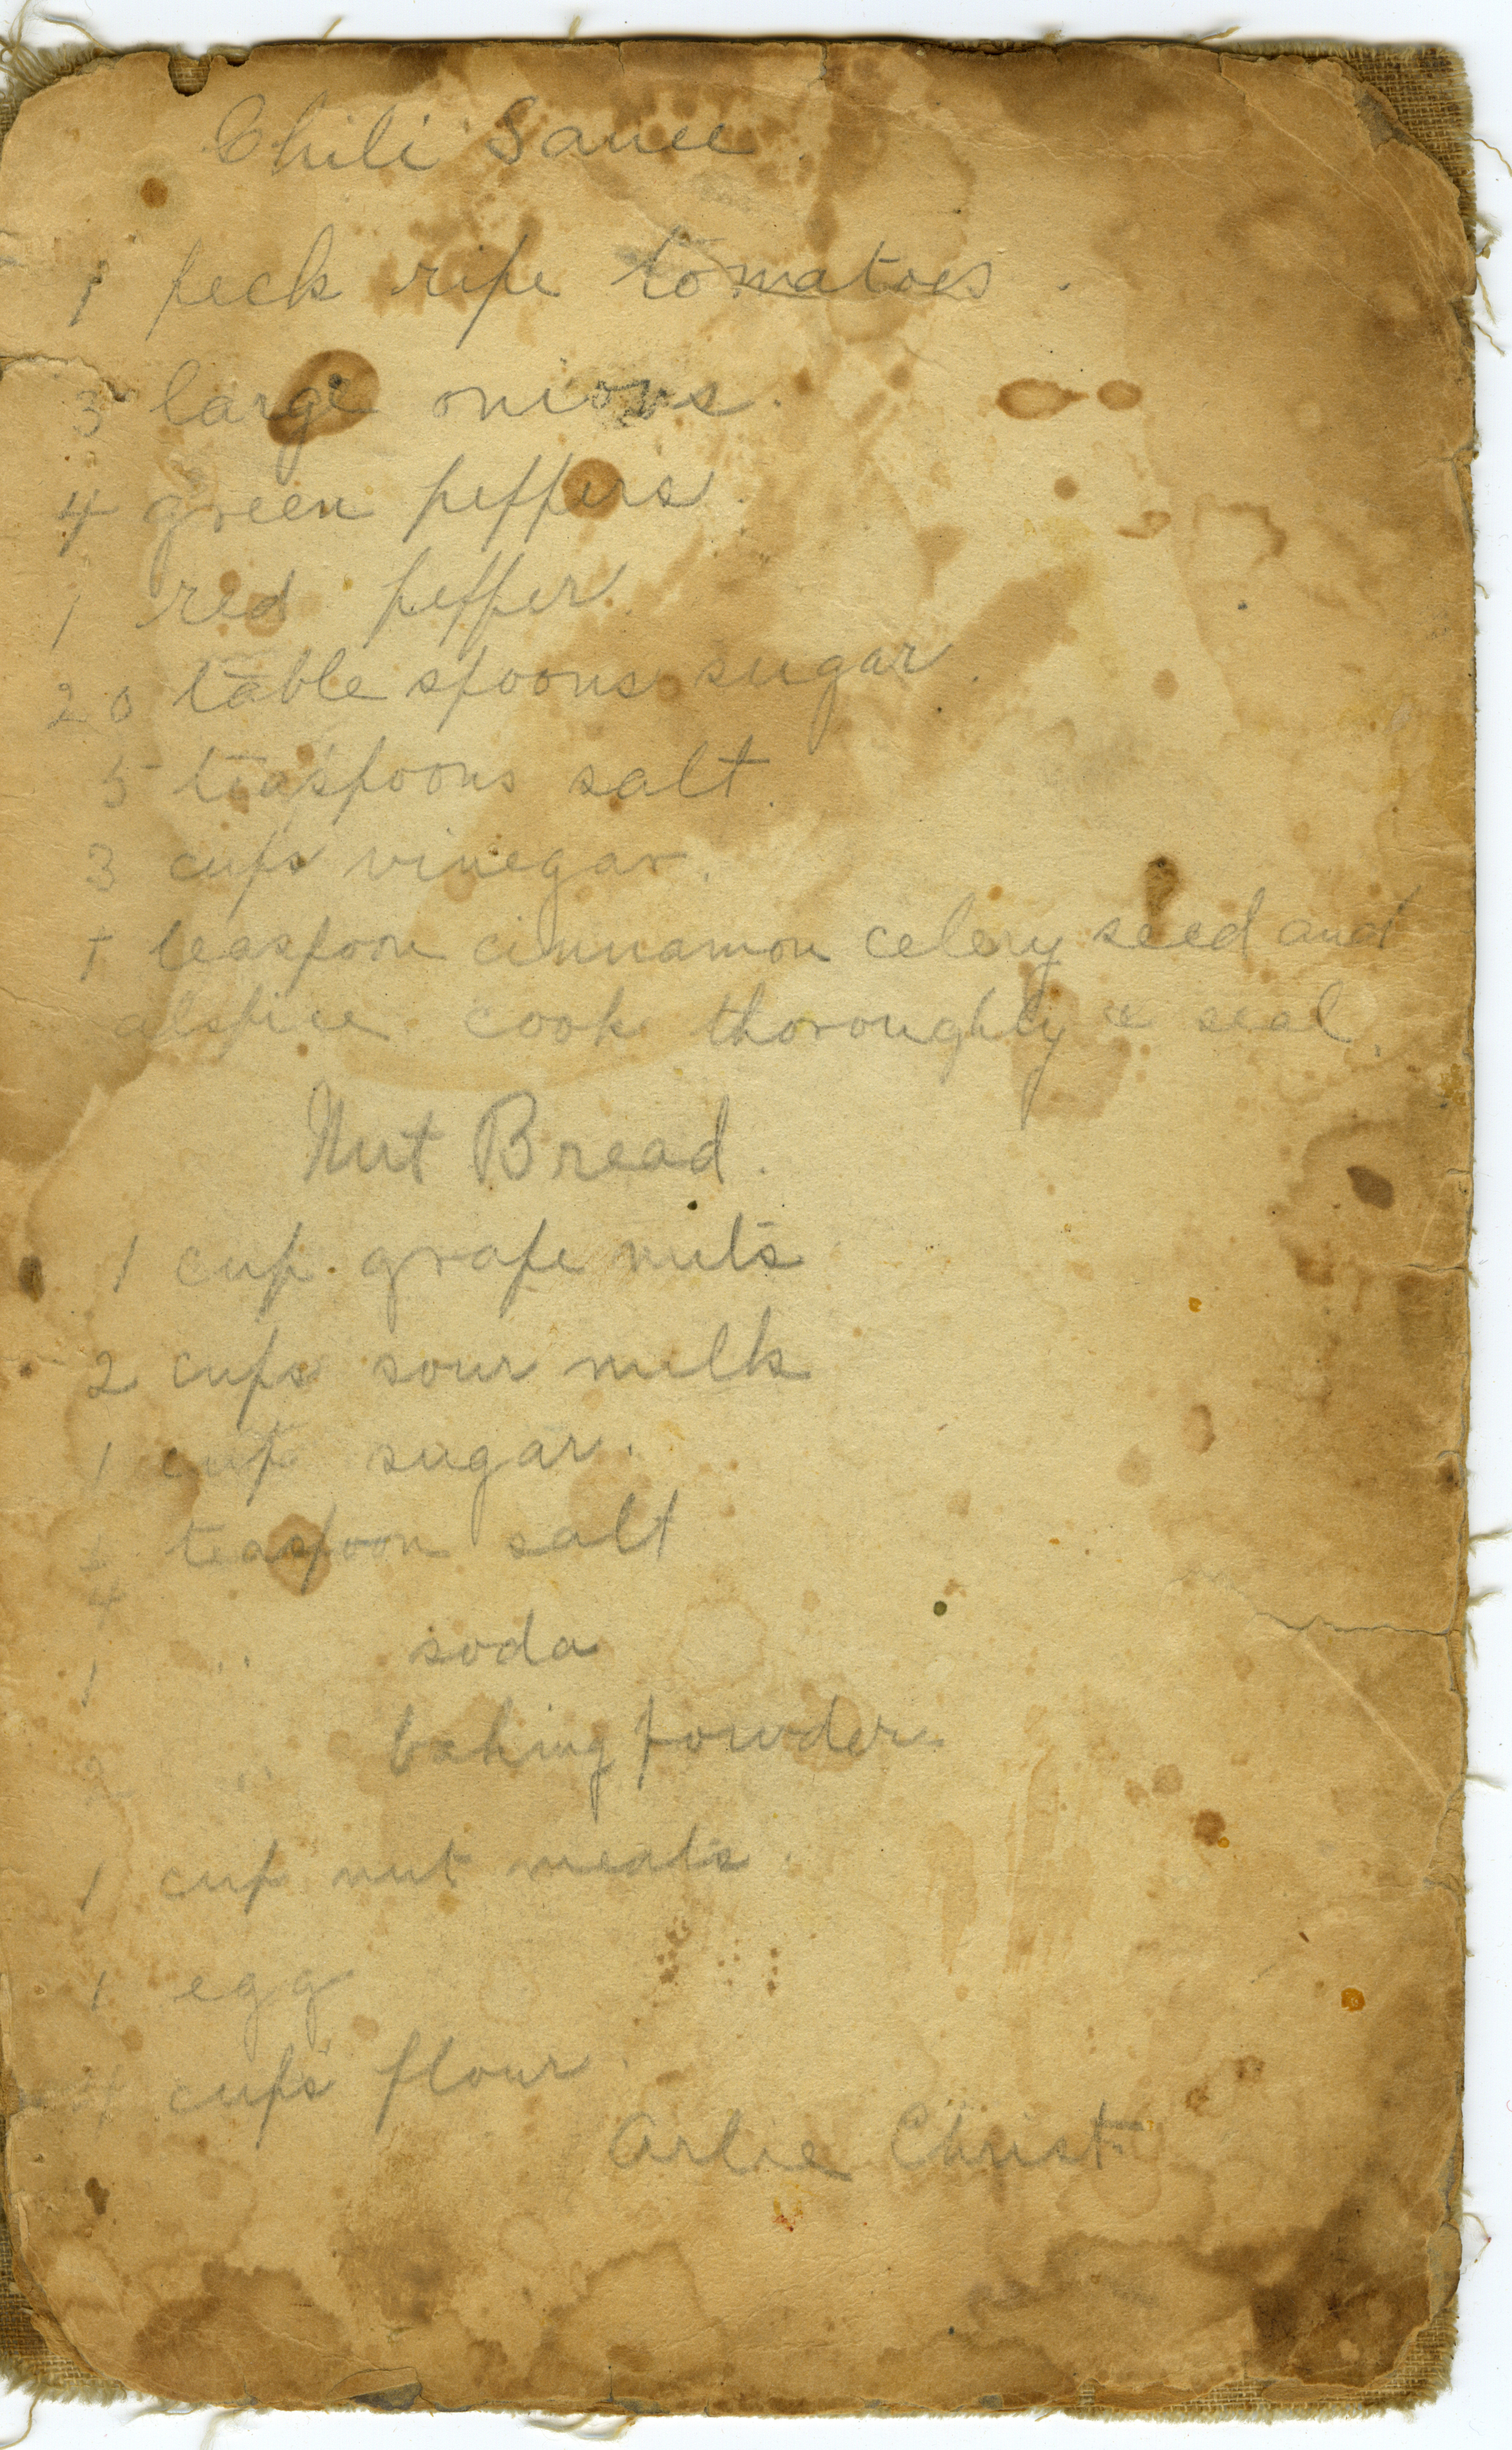 Chili Sauce.
1 peck ripe tomatoes.
3 large onions.
4 green peppers.
1 red pepper.
20 table spoons sugar.
5 teaspoons salt.
3 cups vinegar.
1 teaspoon cinnamon celery seed and
alspice cook thoroughly & seal.
Nut Bread.
1 cup grape nuts
2 cups sour milk
1 cup sugar.
teaspoon salt
1 " soda
2 " baking powder
1 cup nut meats.
1 egg
4 cups flour.
Arlie Christ